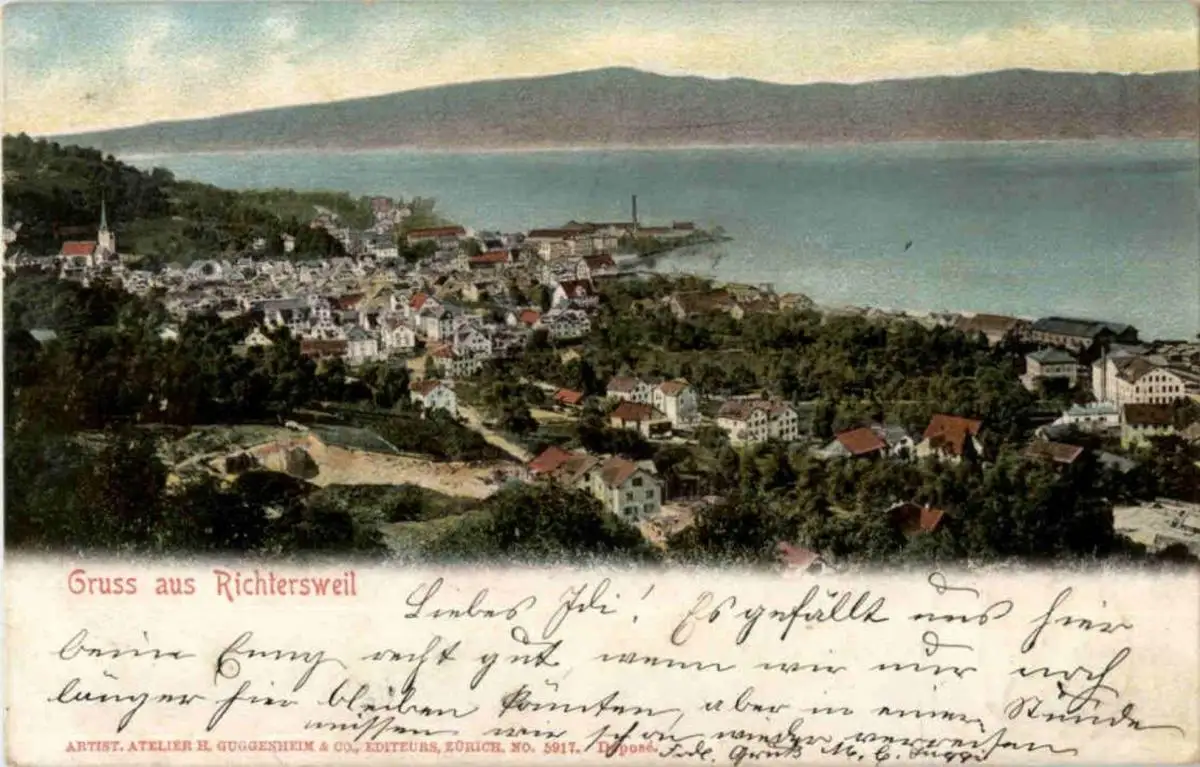 Gruss aus Richtersweil
Liebes Idi! Es gefällt uns hier
beim Emmy recht gut wenn wir nur noch
länger hier bleiben könnten, aber in einer Stunde
müssen wir schon wieder verreisen
ARTIST. ATELIER H. GUGGENHEIM & CO., EDITEURS, ZÜRICH. No. 5917. Déposé.
Frdl. Gruß M. C.